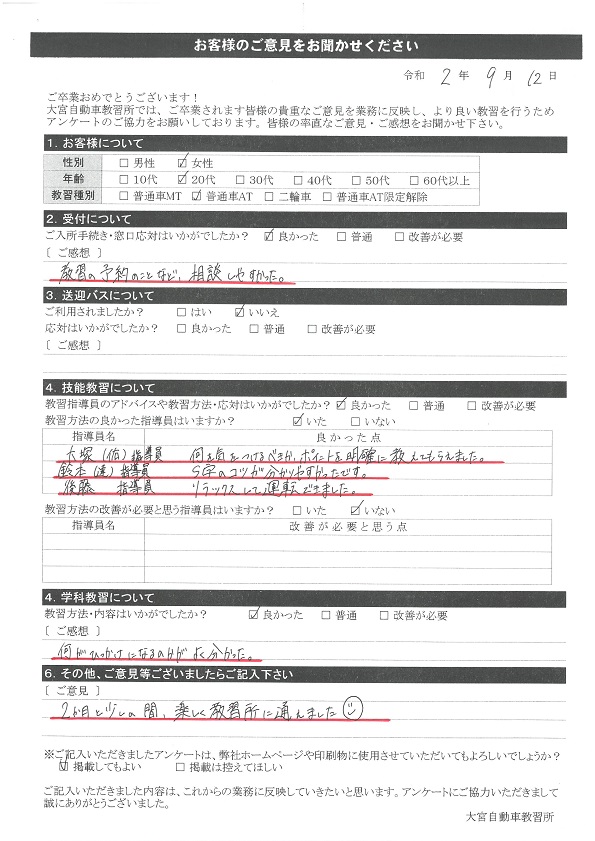 お客様のご意見をお聞かせください
令和 2 年 9 月 12 日
ご卒業おめでとうございます！
大宮自動車教習所では、ご卒業されます皆様の貴重なご意見を業務に反映し、より良い教習を行うため
アンケートのご協力をお願いしております。皆様の率直なご意見・ご感想をお聞かせ下さい。
1. お客様について
性別 □ 男性 ☑ 女性
年齢 □ 10代 ☑ 20代 □ 30代 □ 40代 □ 50代 □ 60代以上
教習種別 □ 普通車MT ☑ 普通車AT □ 二輪車 □ 普通車AT限定解除
2. 受付について
ご入所手続き・窓口応対はいかがでしたか？ ☑ 良かった □ 普通 □ 改善が必要
〔 ご感想 〕
教習の予約のことなど、相談しやすかった。
3. 送迎バスについて
ご利用されましたか？ □ はい ☑ いいえ
応対はいかがでしたか？ □ 良かった □ 普通 □ 改善が必要
〔 ご感想 〕
4. 技能教習について
教習指導員のアドバイスや教習方法・応対はいかがでしたか？ ☑ 良かった □ 普通 □ 改善が必要
教習方法の良かった指導員はいますか？ ☑ いた □ いない
指導員名 良かった点
大塚（佑）指導員 何に気をつけるべきか、ポイントを明確に教えてもらえました。
鈴木（達）指導員 S字のコツが分かりやすかったです。
後藤 指導員 リラックスして運転できました。
教習方法の改善が必要と思う指導員はいますか？ □ いた ☑ いない
指導員名 改善が必要と思う点
4. 学科教習について
教習方法・内容はいかがでしたか？ ☑ 良かった □ 普通 □ 改善が必要
〔 ご感想 〕
何がひっかけになるのかがよく分かった。
6. その他、ご意見等ございましたらご記入下さい
〔 ご意見 〕
2か月と少しの間、楽しく教習所に通えました
※ご記入いただきましたアンケートは、弊社ホームページや印刷物に使用させていただいてもよろしいでしょうか？
☑ 掲載してもよい □ 掲載は控えてほしい
ご記入いただきました内容は、これからの業務に反映していきたいと思います。アンケートにご協力いただきまして
誠にありがとうございました。
大宮自動車教習所